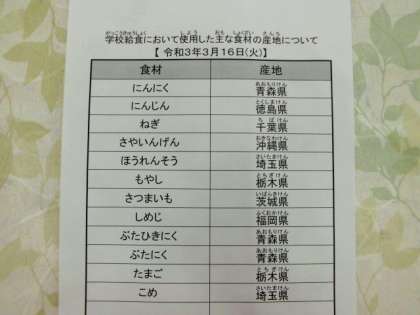 学校給食において使用した主な食材の産地について
【 令和3年3月16日(火)】
食材 産地
にんにく 青森県
にんじん 徳島県
ねぎ 千葉県
さやいんげん 沖縄県
ほうれんそう 埼玉県
もやし 栃木県
さつまいも 茨城県
しめじ 福岡県
ぶたひきにく 青森県
ぶたにく 青森県
たまご 栃木県
こめ 埼玉県